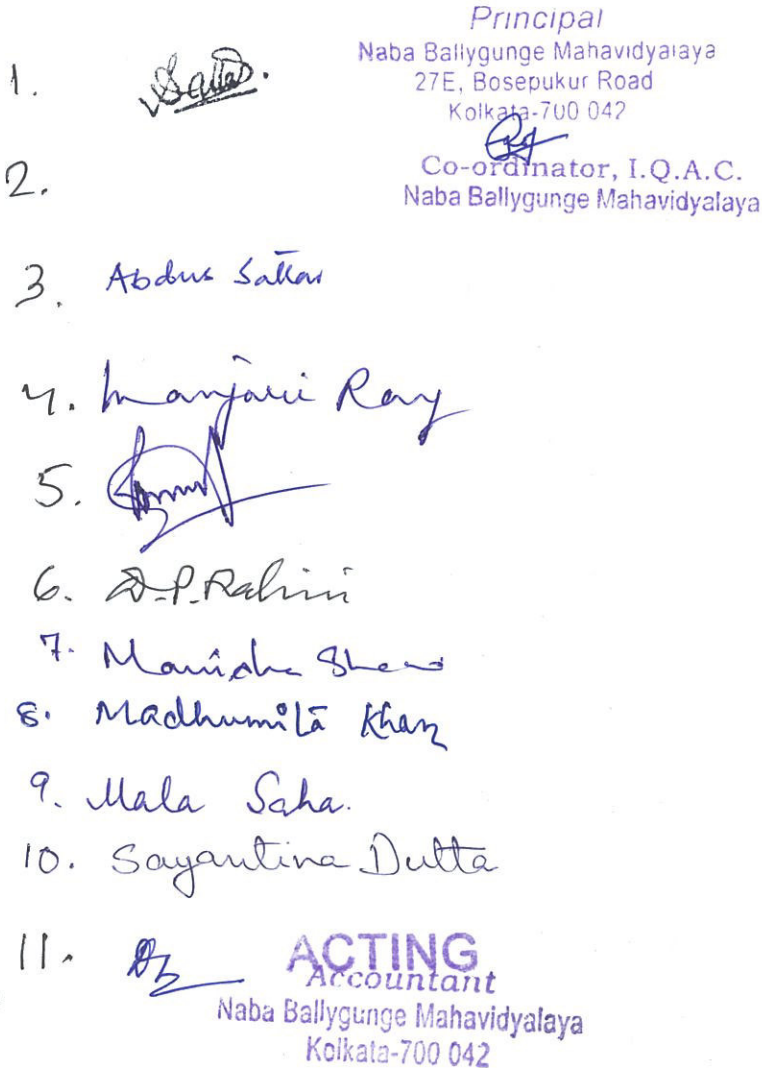 Principal
Naba Ballygunge Mahavidyalaya
27E, Bosepukur Road
Kolkata-700 042
1.
2.
Co-ordinator, I.Q.A.C.
Naba Ballygunge Mahavidyalaya
3. Abdus Sattar
4. Manjari Ray
5.
6. D.P. Rahini
7. Manisha Shaw
8. Madhumita Khan
9. Mala Saha.
10. Sayantina Dutta
11.
ACTING
Accountant
Naba Ballygunge Mahavidyalaya
Kolkata-700 042